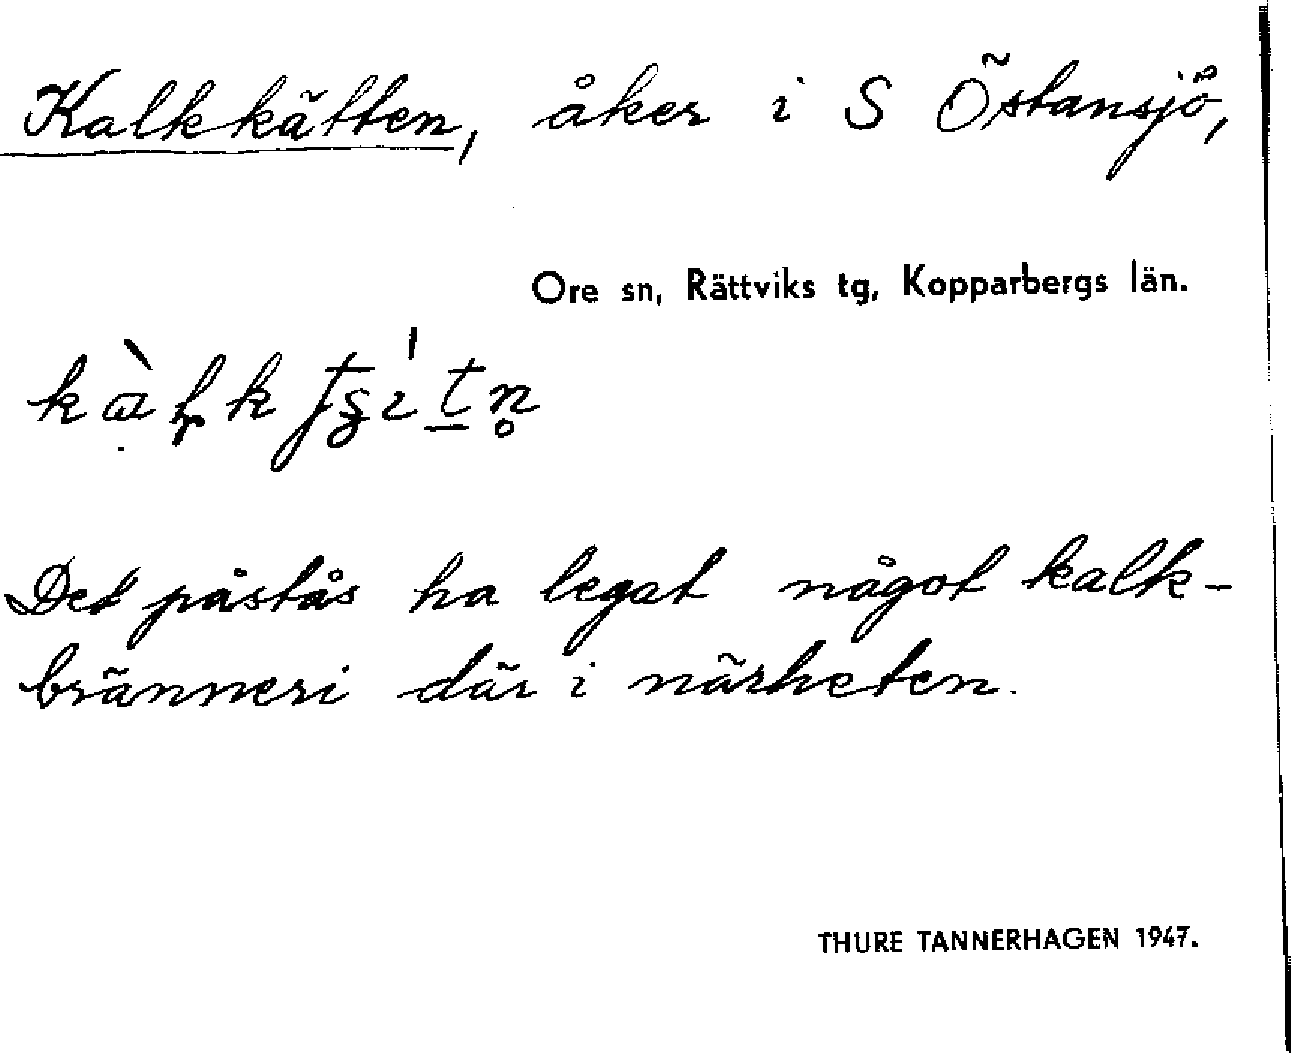 Kalkkätten, åker i S Östansjö,
Ore sn, Rättviks tg, Kopparbergs län.
Det påstås ha legat något kalk-
bränneri där i närheten.
THURE TANNERHAGEN 1947.